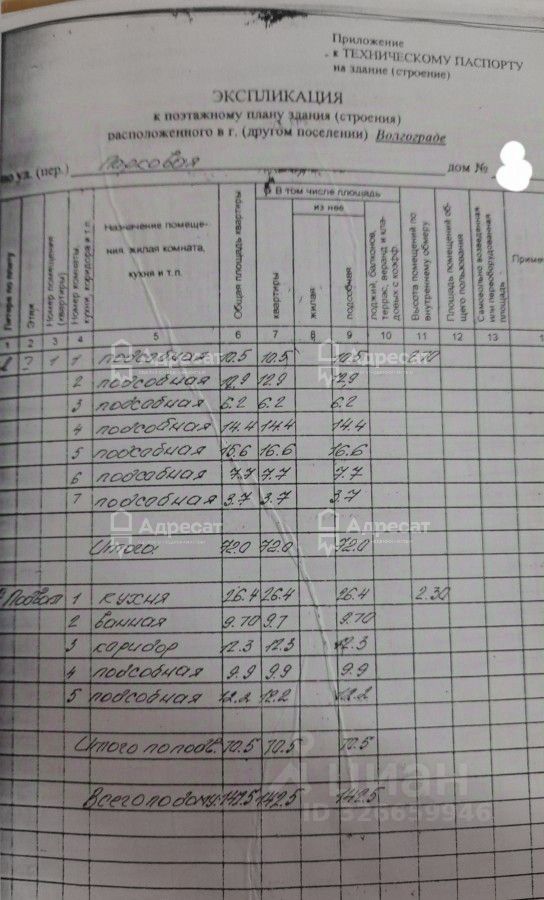 Приложение
к ТЕХНИЧЕСКОМУ ПАСПОРТУ
на здание (строение)
ЭКСПЛИКАЦИЯ
к поэтажному плану здания (строения)
расположенного в г. (другом поселении) Волгограде
по ул. (пер.) Парковая дом №
Литера по плану
Этаж
Номер помещения (квартиры)
Номер комнаты, кухни, коридора и т.п.
Назначение помеще-
ния жилая комната,
кухня и т.п.
Общая площадь квартиры
В том числе площадь
из нее
квартиры
жилая
подсобная
лоджий, балконов, террас, веранд и кладовых с коэфф.
Высота помещений по внутреннему обмеру
Площадь помещений общего пользования
Самовольно возведенная или переоборудованная площадь
Приме
1 2 3 4 5 6 7 8 9 10 11 12 13
1 1 подсобная 10.5 10.5 10.5
2 подсобная 12.9 12.9 12.9
3 подсобная 6.2 6.2 6.2
4 подсобная 14.4 14.4 14.4
5 подсобная 16.6 16.6 16.6
6 подсобная 7.7 7.7 7.7
7 подсобная 3.7 3.7 3.7
Итого 72.0 72.0 72.0
Подвал 1 кухня 26.4 26.4 26.4 2.30
2 ванная 9.70 9.7 9.70
3 каридор 12.3 12.3 12.3
4 подсобная 9.9 9.9 9.9
5 подсобная 12.2 12.2 12.2
Итого по подв. 70.5 70.5 70.5
Всего по дому: 142.5 142.5 142.5
Адресат
Адресат
Адресат
Адресат
Адресат
Адресат
циан
ID 326659946